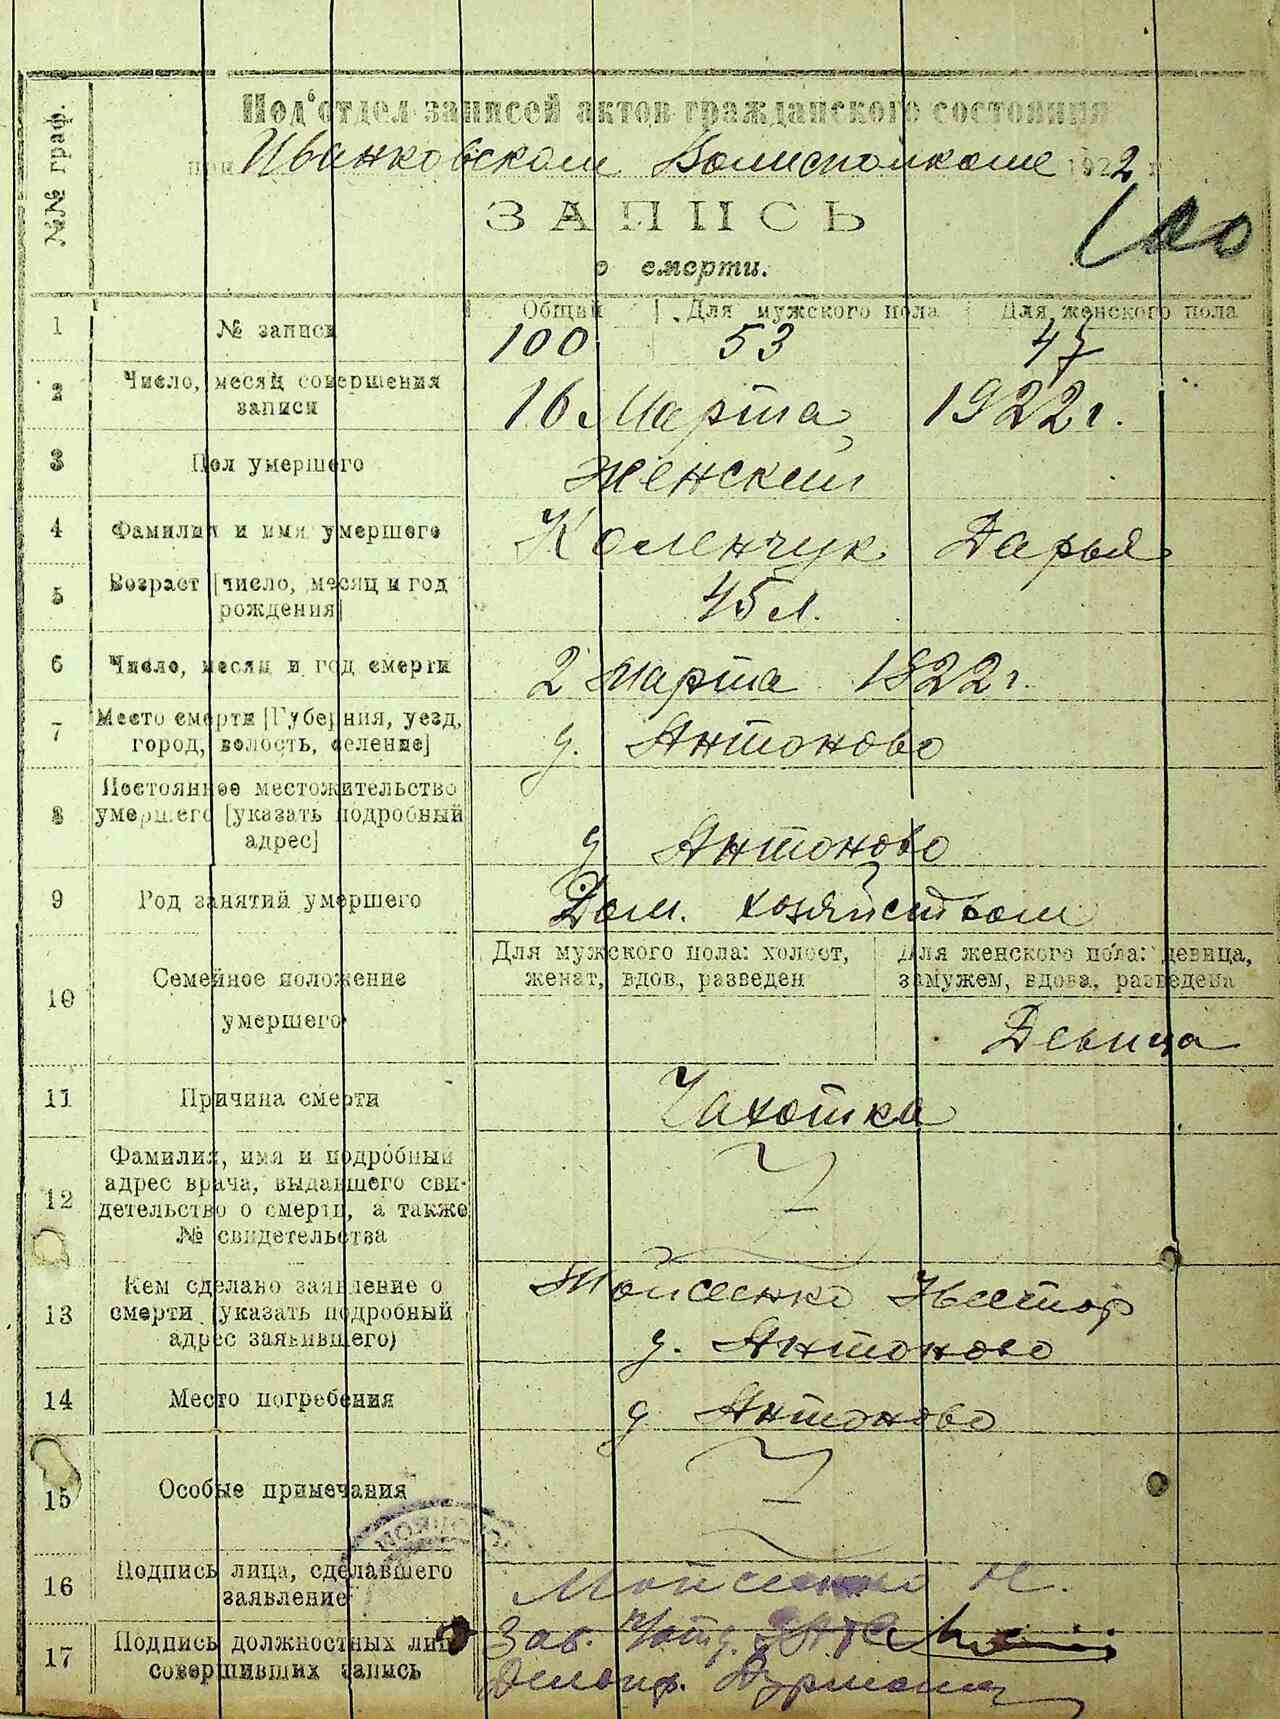 №№ граф.
Под'отдел записей актов гражданского состояния
при Иванковском Волисполкоме 1922 г.
ЗАПИСЬ
о смерти.
100
Общий Для мужского пола Для женского пола
1 № записи 100 53 47
2 Число, месяц совершения
записи 16 Марта 1922 г.
3 Пол умершего Женский
4 Фамилия и имя умершего Коленчук Дарья
5 Возраст [число, месяц и год
рождения] 45 л.
6 Число, месяц и год смерти 2 Марта 1922 г.
7 Место смерти [Губерния, уезд,
город, волость, селение] д. Антоново
8 Постоянное местожительство
умершего [указать подробный
адрес] д Антоново
9 Род занятий умершего Дом. хозяйством
10 Семейное положение
умершего
Для мужского пола: холост,
женат, вдов, разведен
Для женского пола: девица,
замужем, вдова, разведена
Девица
11 Причина смерти Чахотка
12 Фамилия, имя и подробный
адрес врача, выдавшего сви-
детельство о смерти, а также
№ свидетельства
13 Кем сделано заявление о
смерти (указать подробный
адрес заявившего)
Мойсеенко Нестор
д. Антоново
14 Место погребения д Антоново
15 Особые примечания
16 Подпись лица, сделавшего
заявление Мойсеенко Н.
17 Подпись должностных лиц
совершивших запись
Зав.
Делопр.